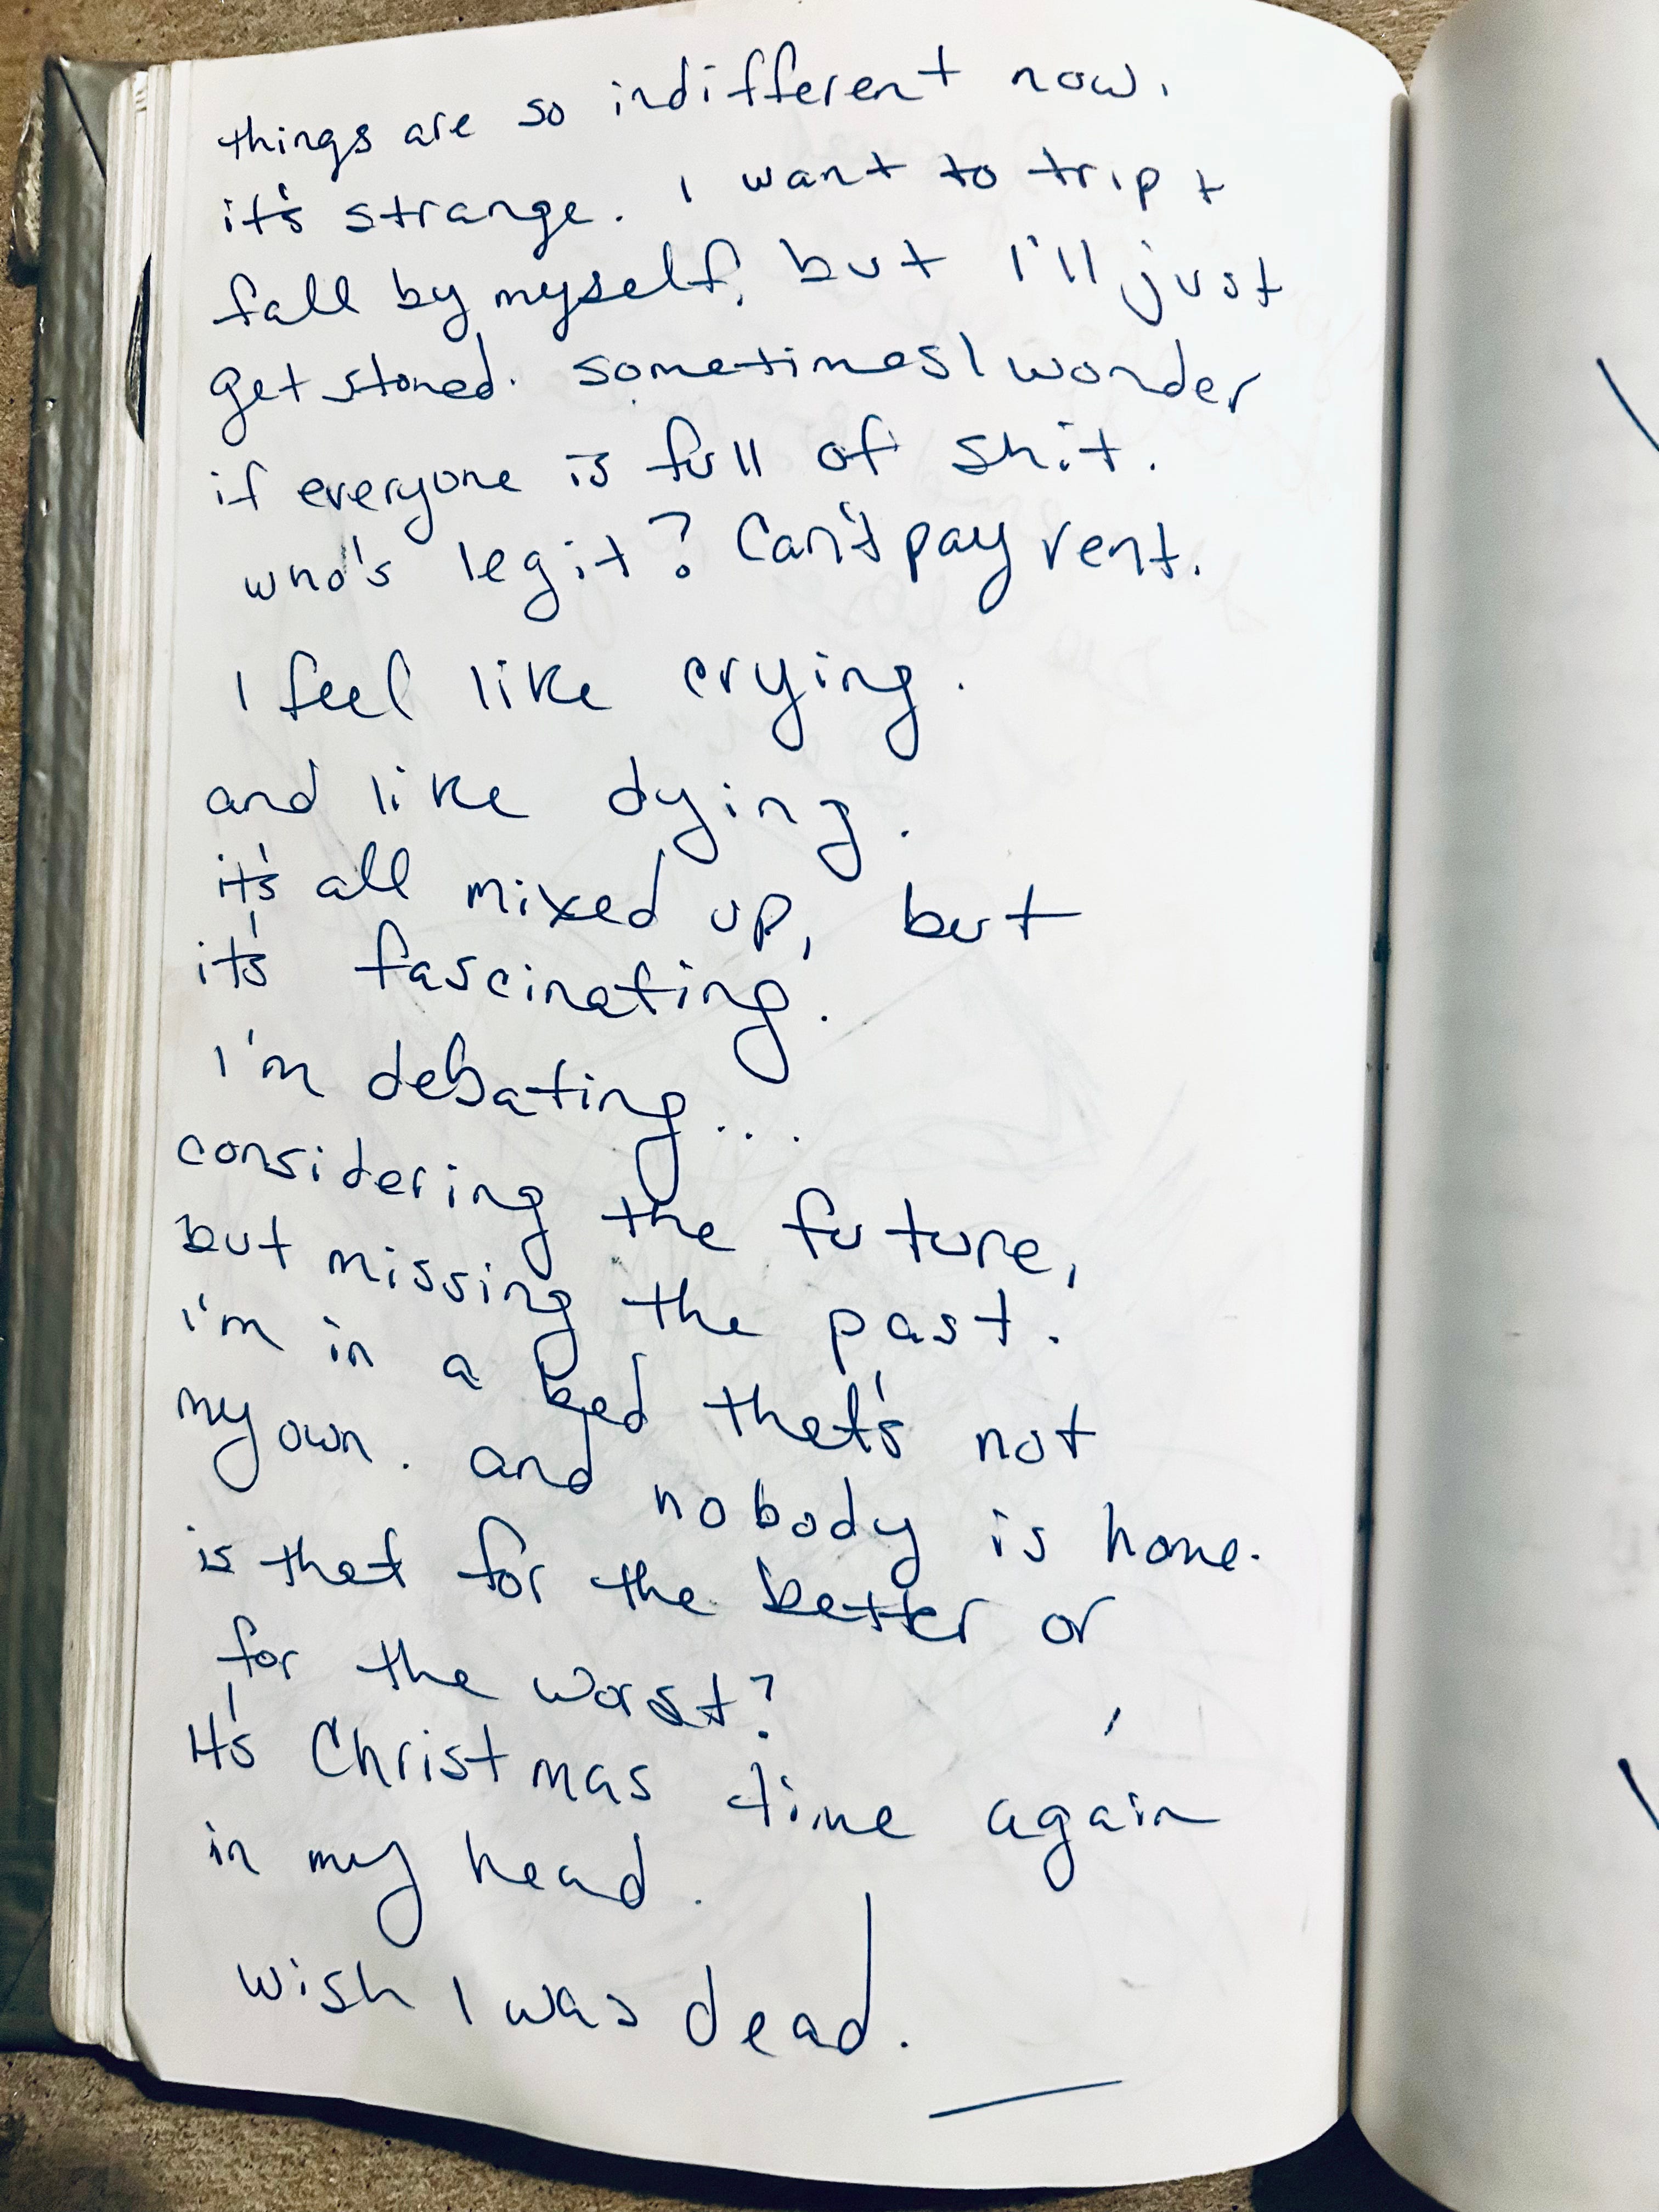 things are so indifferent now.
it's strange. I want to trip +
fall by myself, but I'll just
get stoned. sometimes I wonder
if everyone is full of shit.
who's legit? Can't pay rent.
I feel like crying.
and like dying.
it's all mixed up, but
it's fascinating.
I'm debating...
considering the future,
but missing the past.
i'm in a bed that's not
my own. and nobody is home.
is that for the better or
for the worst?
It's Christmas time again
in my head.
wish I was dead.